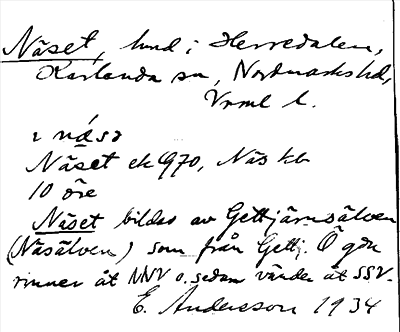 Näset, hmd i Herredalen,
Karlanda sn, Nordmarks hd,
Vrml l.
Näset ek 970, Näs kb
10 öre
Näset bildas av Gettjärnsälven
(Näsälven) som från Gettj. Ö gdn
rinner åt NNV o. sedan vänder åt SSV.
E. Andersson 1934